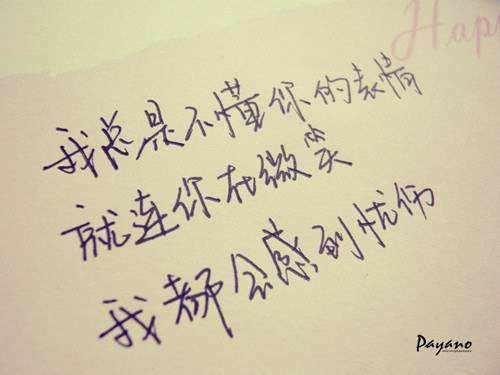 Hap
我总是不懂你的表情
就连你在微笑
我都会感到忧伤
Payano